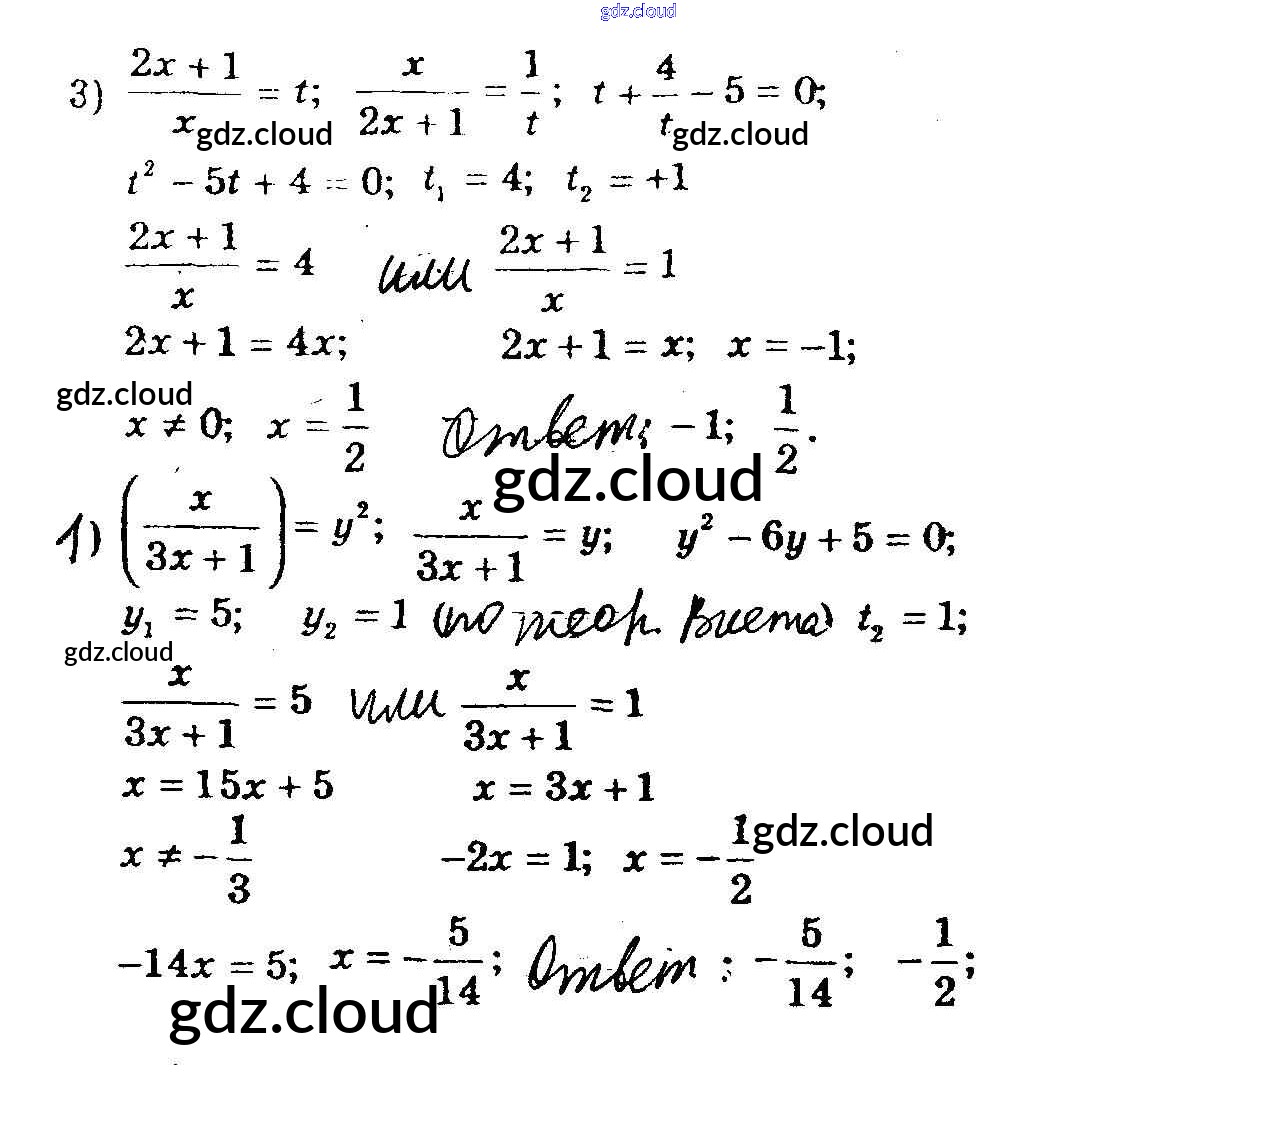 gdz.cloud
3) (2x + 1)/x = t; x/(2x + 1) = 1/t; t + 4/t - 5 = 0;
gdz.cloud gdz.cloud
t² - 5t + 4 = 0; t₁ = 4; t₂ = +1
(2x + 1)/x = 4 или (2x + 1)/x = 1
2x + 1 = 4x; 2x + 1 = x; x = -1;
gdz.cloud
x ≠ 0; x = 1/2 Ответ: -1; 1/2.
gdz.cloud
1) (x/(3x + 1)) = y²; x/(3x + 1) = y; y² - 6y + 5 = 0;
y₁ = 5; y₂ = 1 (по теор. Виета) t₂ = 1;
gdz.cloud
x/(3x + 1) = 5 или x/(3x + 1) = 1
x = 15x + 5 x = 3x + 1
x ≠ -1/3 -2x = 1; x = -1/2
gdz.cloud
-14x = 5; x = -5/14; Ответ: -5/14; -1/2;
gdz.cloud